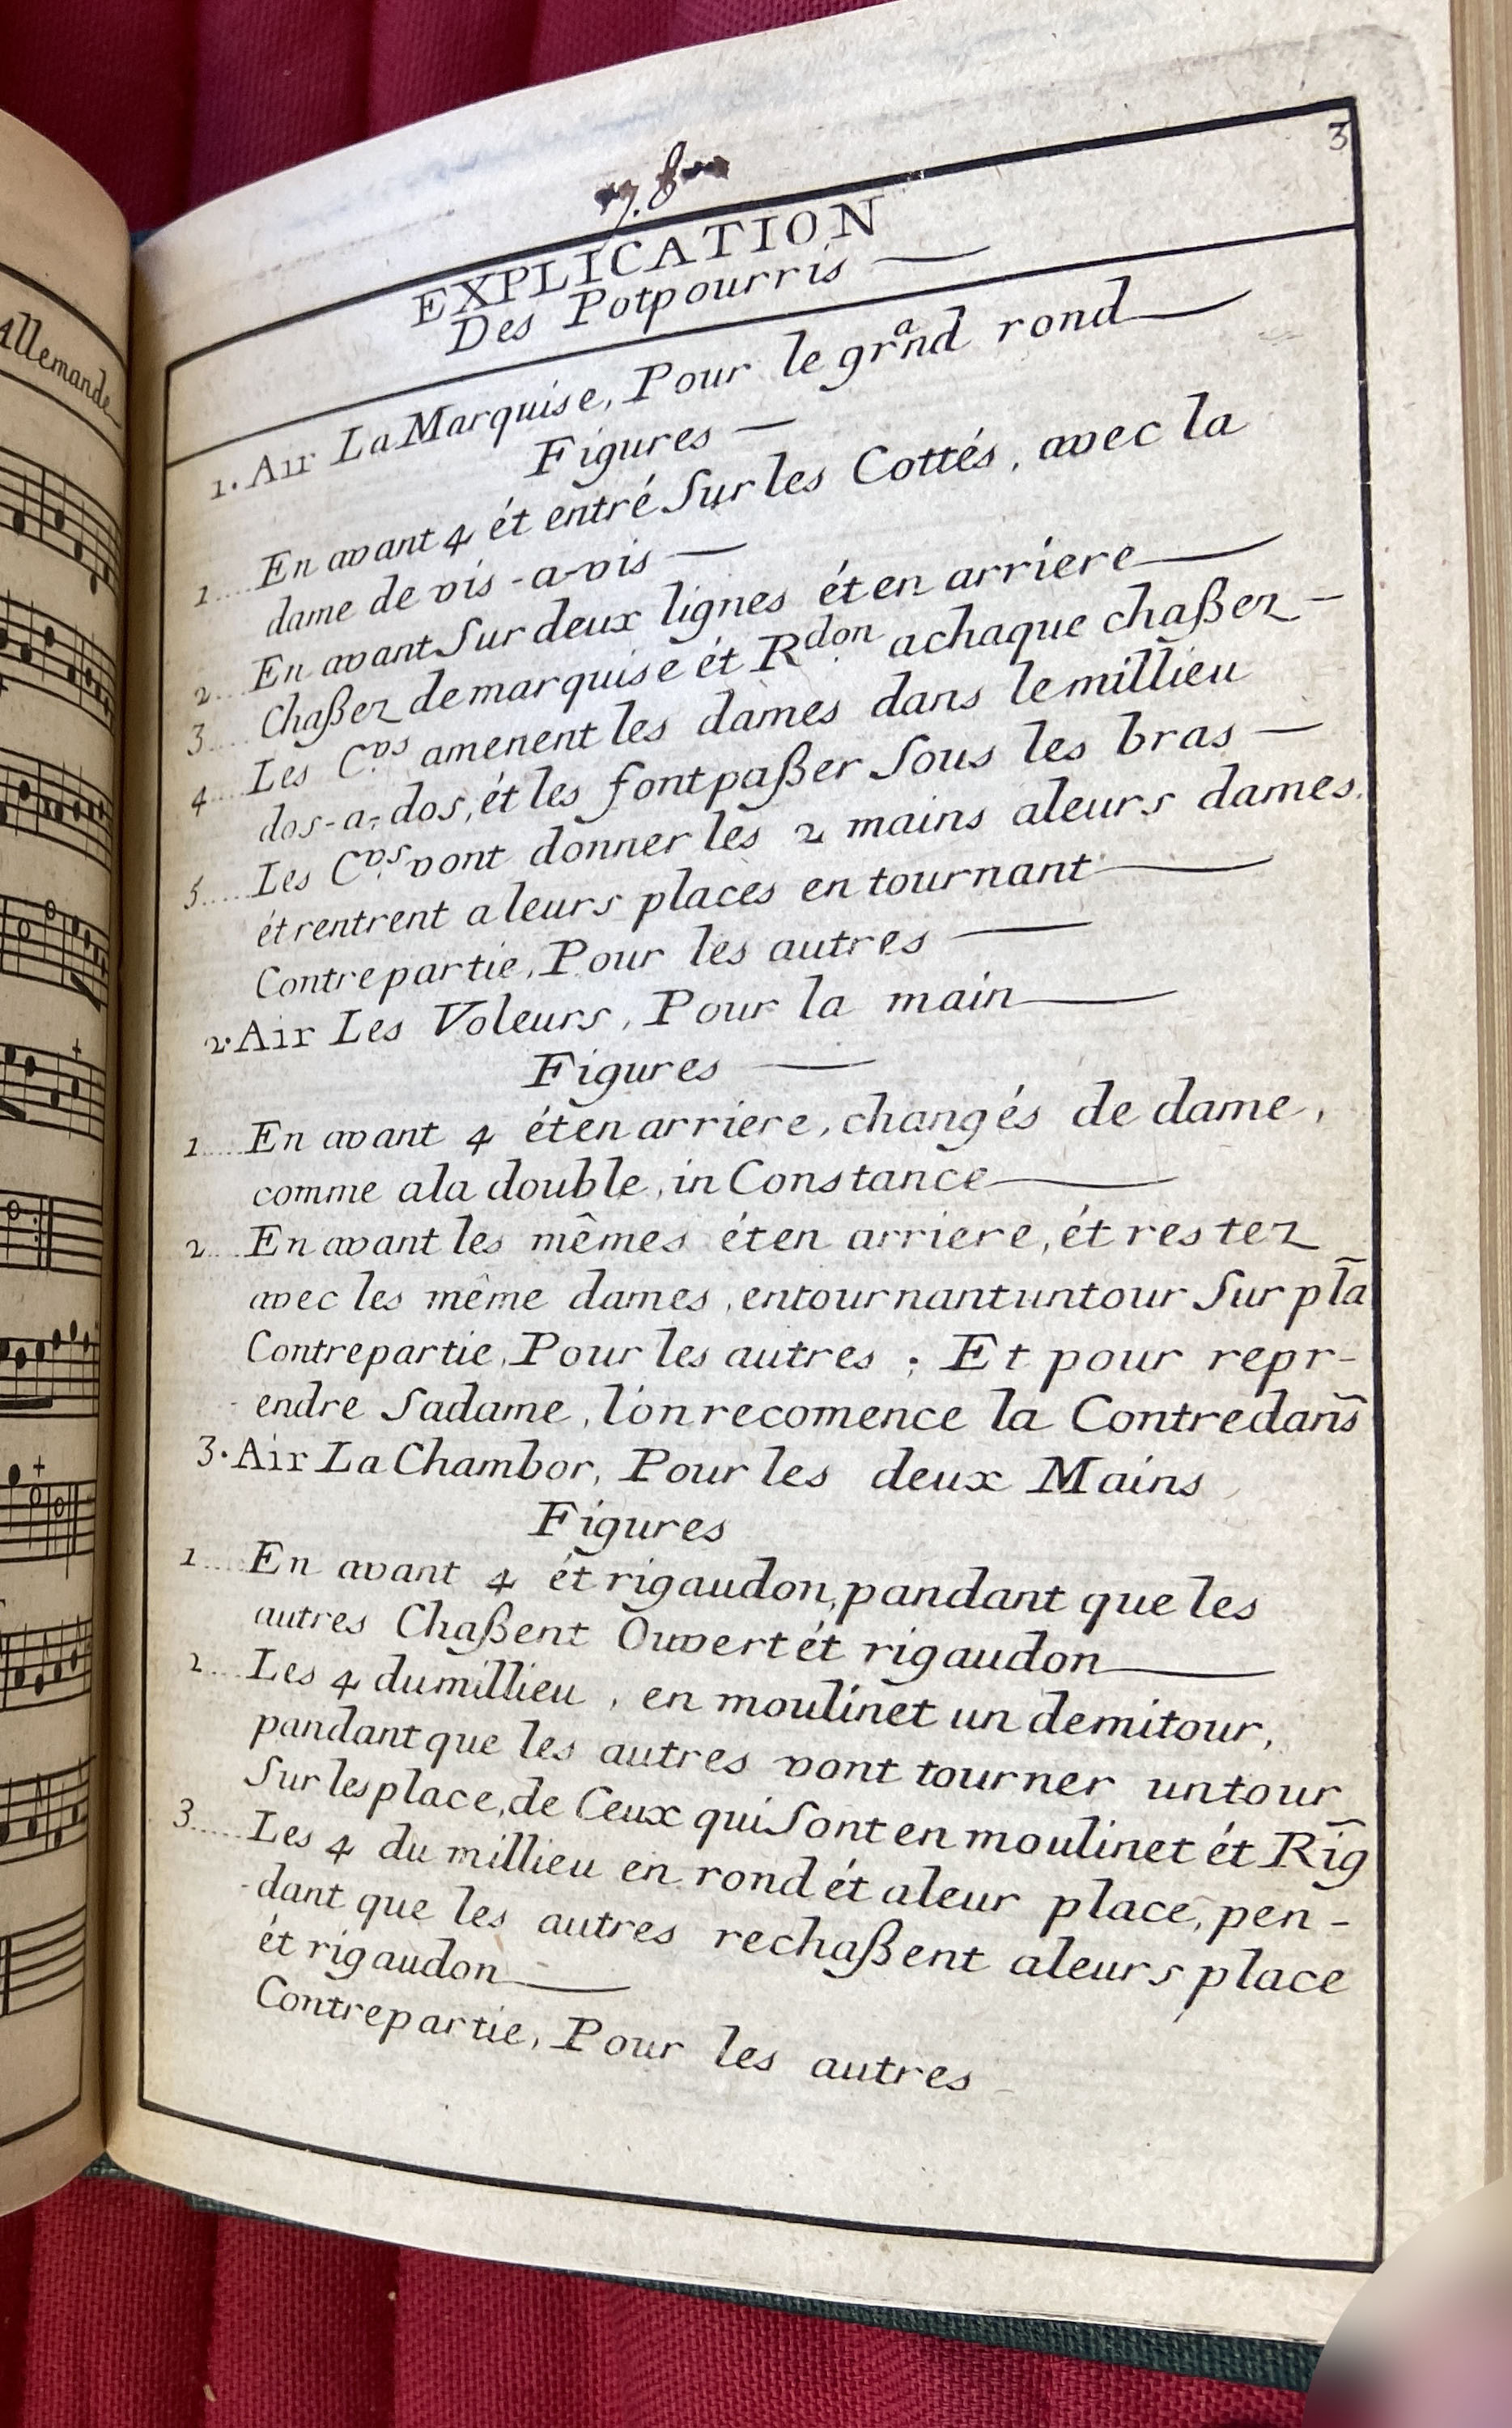 Allemande
3
EXPLICATION
Des Potpourris
1. Air La Marquise, Pour le grand rond
Figures
1.... En avant 4 ét entré Sur les Cottés, avec la
dame de vis-a-vis
2... En avant Sur deux lignes ét en arriere
3.... Chaßez de marquise ét Rdon. a chaque chaßez
4.... Les C.vs amenent les dames dans le millieu
dos-a-dos, ét les font paßer Sous les bras
5..... Les C.vs vont donner les 2 mains a leurs dames.
ét rentrent a leurs places en tournant
Contrepartie, Pour les autres
2. Air Les Voleurs, Pour la main
Figures
1..... En avant 4 ét en arriere, changés de dame,
comme a la double, in Constance
2.... En avant les mêmes ét en arriere, ét restez
avec les même dames, en tournant un tour Sur pl̃a
Contrepartie, Pour les autres ; Et pour repr-
endre Sa dame, l'on recomence la Contredañs
3. Air La Chambor, Pour les deux Mains
Figures
1..... En avant 4 ét rigaudon, pandant que les
autres Chaßent Ouvert ét rigaudon
2.... Les 4 du millieu, en moulinet un demi tour,
pandant que les autres vont tourner un tour
Sur les place, de Ceux qui Sont en moulinet ét Rĩg
3..... Les 4 du millieu en rond ét a leur place, pen-
-dant que les autres rechaßent a leurs place
ét rigaudon
Contrepartie, Pour les autres